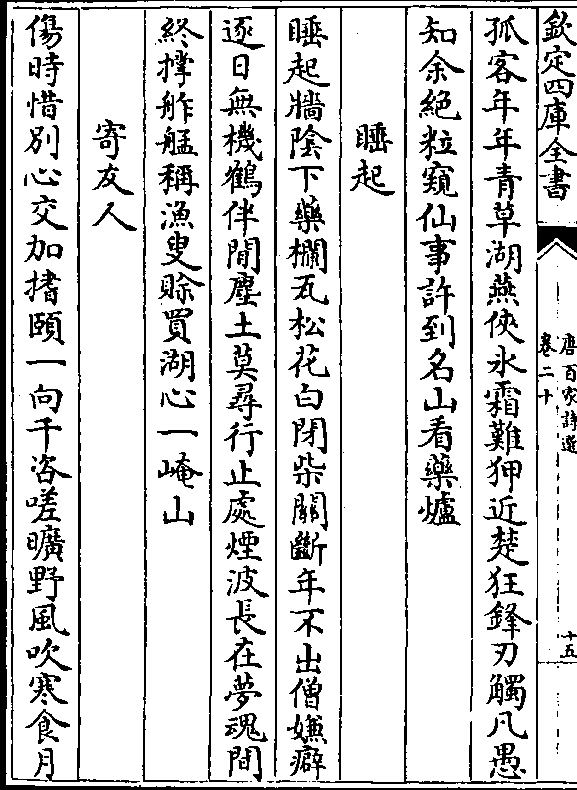 欽定四庫全書
唐百家詩選
卷二十
十五
孤客年年青草湖燕俠氷霜難狎近楚狂鋒刃觸凡愚
知余絶粒窺仙事許到名山看藥爐
睡起
睡起牆陰下藥欄瓦松花白閉柴關斷年不出僧嫌癖
逐日無機鶴伴閒塵土莫尋行止處煙波長在夢魂間
終撐舴艋稱漁叟賒買湖心一崦山
寄友人
傷時惜别心交加搘頤一向千咨嗟曠野風吹寒食月